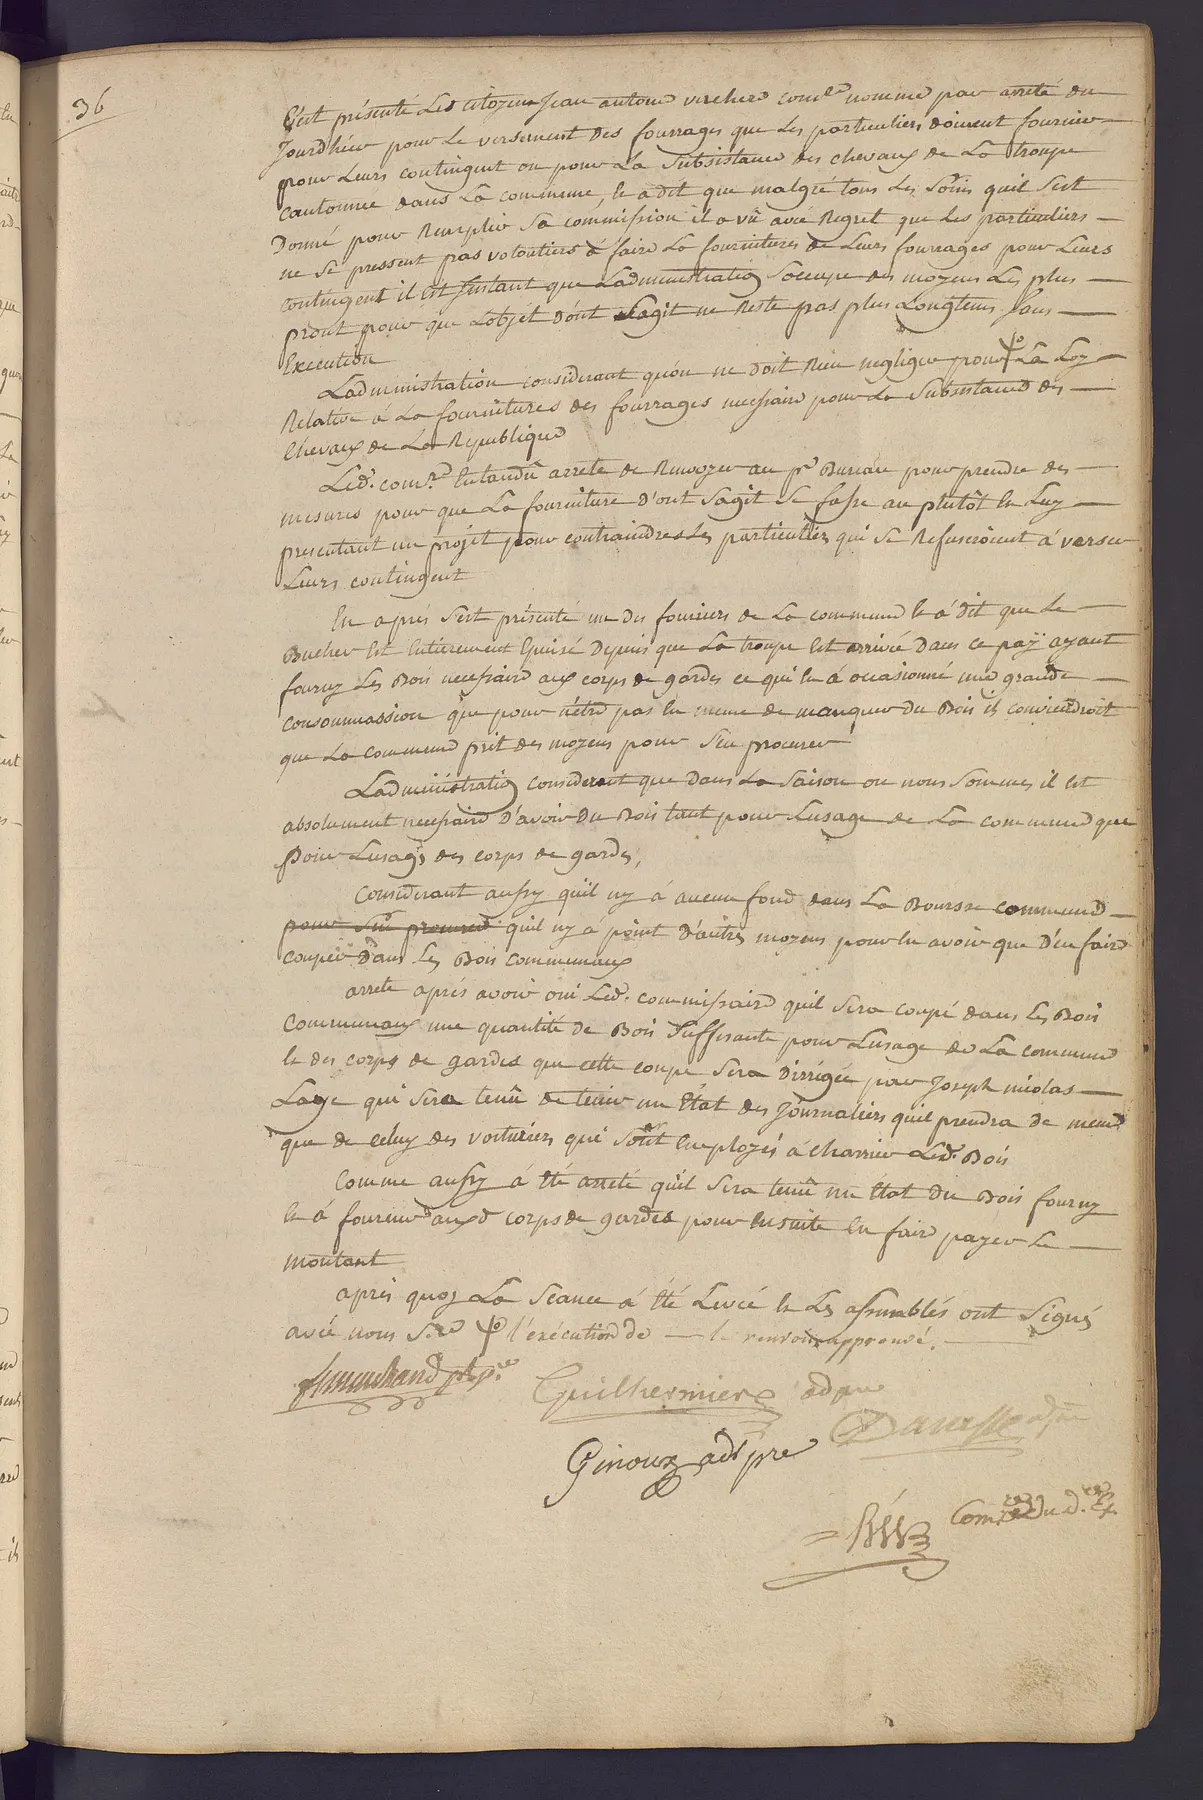 36
S'est présenté Le citoyen Jean antoine verchere com.re nommé par arreté du
Jourdhier pour Le versement Des fourrages que Les particuliers doivent fournir
pour Leurs contingent ou pour La Subsistance des chevaux de La troupe
cantonnée dans La commune, Et a dit que malgré tous Les Soins quil S'est
Donné pour Remplir Sa commission il a vû avec Regret que Les particuliers
ne Se pressent pas volontiers á faire La fournitures de Leurs fourrages pour Leurs
contingent il Est Instant que Ladministration S'occupe des moyens Les plus
pront pour que L'objet dont Sagit ne Reste pas plus Longtems Sans
Execution
Ladministration considerant qu'on ne doit Rien negliger pour La Loy
Relative á La fournitures des fourrages necessaire pour La Subsistance des
Chevaux de La Republique
Led. com.re Entandû arrete de Renvoyer au p.r Bureau pour prendre des
mesures pour que La fourniture d'ont Sagit Se fasse au plutôt En Luy
presentant un projet pour contraindre Les particuliers qui Se Refuseroient á verser
Leurs contingent
En aprés S'est présenté un des fouriers de La commune Et á dit que Le
Bucher Est Entierement Epuisé Depuis que La troupe Est arrivée Dans ce païy ayant
fourny Les Bois necessaire aux corps de gardes ce qui En á occasionné une grande
consommassion que pour n'être pas En meme de manquer du Bois il conviendroit
que La commune prit des moyens pour S'en procurer
Ladministration considerant que dans La Saison ou nous Sommes il Est
absolument necessaire D'avoir Du Bois tant pour Lusage de La commune que
pour Lusage des corps de gardes,
Considerant aussy quil ny á aucun fond dans La Bourse commune
pour S'en procurer quil ny á point D'autres moyens pour En avoir que D'en faire
couper Dans Les Bois communaux
arrete aprés avoir oui Led. commissaire quil Sera coupé dans Les Bois
Communaux une quantité de Bois Suffisante pour Lusage de La commune
Et des corps de gardes que cette coupe Sera Dirrigée par Joseph nicolas
Lage qui Sera tenû de tenir un Etat des Journaliers quil prendra de meme
que de celuy des voituriers qui Sont Employés á charrier Led. Bois
Comme aussy á Eté arreté quil Sera tenû un Etat Du Bois fourny
Et á fournir auxd corps de gardes pour Ensuite En faire payer Le
montant
aprés quoy La Seance á Eté Levée Et Les assemblés ont Signés
avec nous S.re l'exécution de le renvoi approuvé.
Guilhermier adm
Ginoux adm